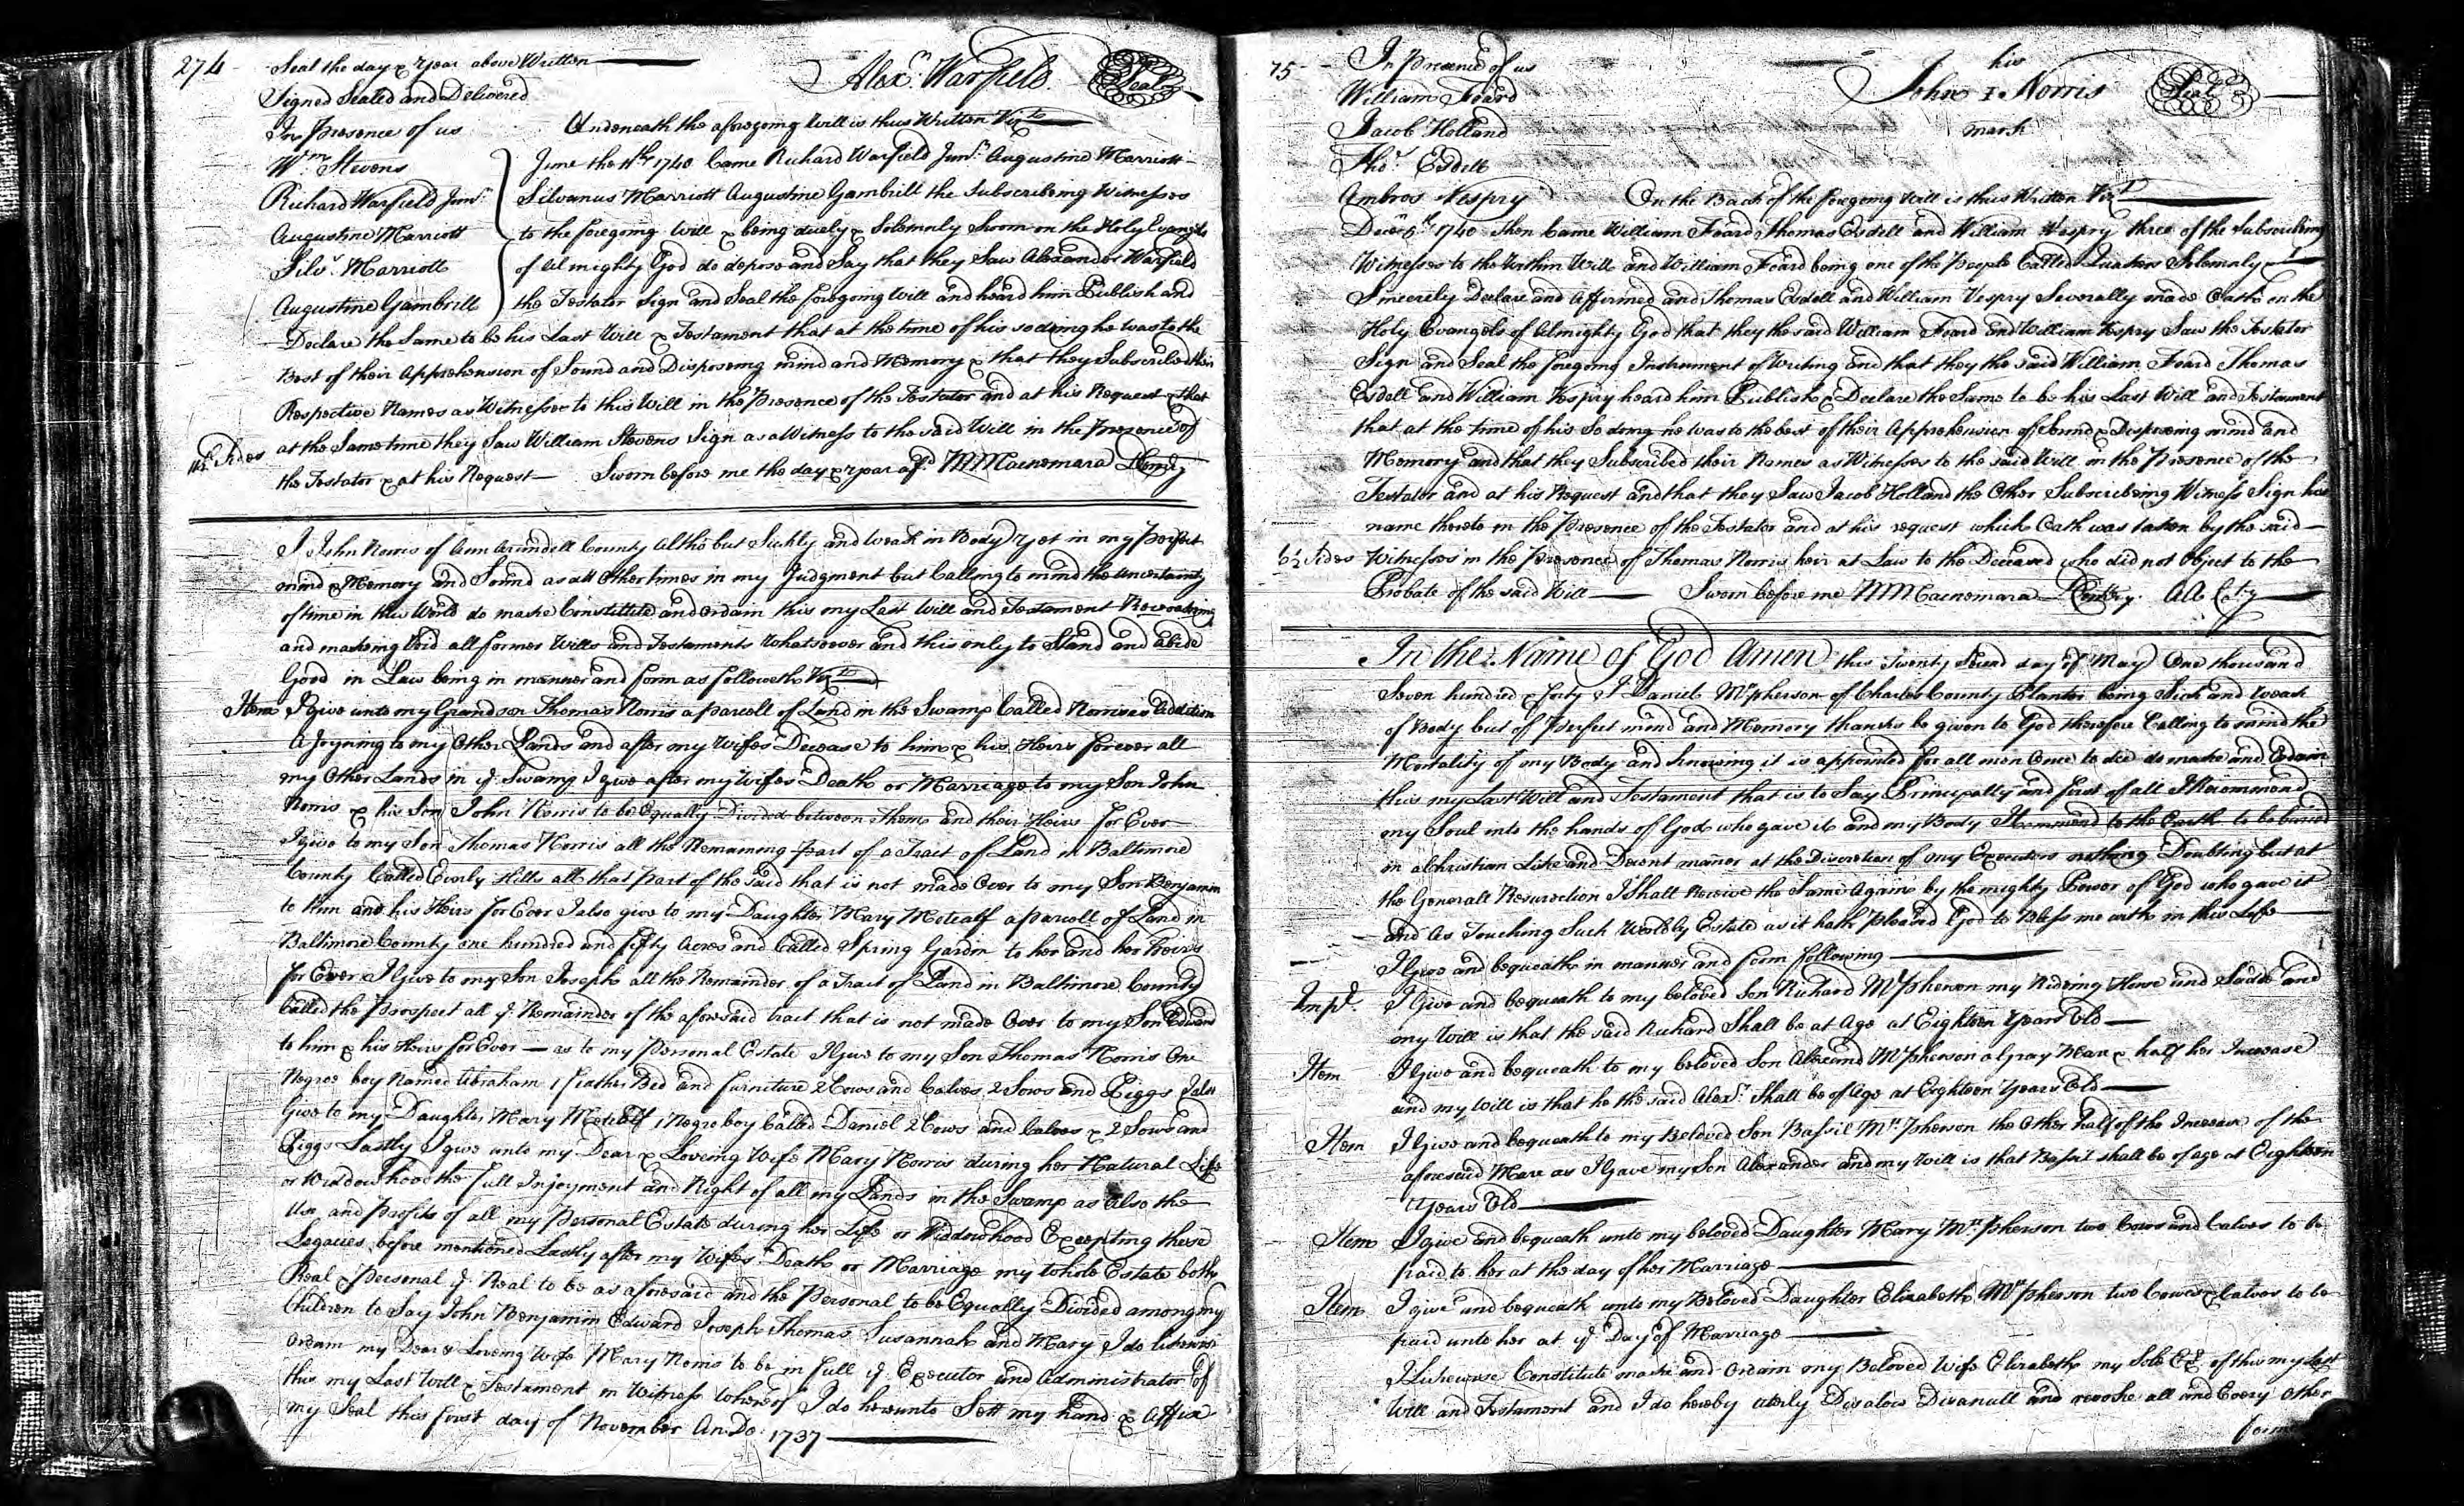 274
Seal the day & Year above Written
Alexr. Warfield Seal
Signed Sealed and Delivered
In Presence of us
Underneath the aforegoing Will is thus Written Vizt
Wm. Stevens
Richard Warfield Junr.
Augustine Marriott
Silvr. Marriott
Augustine Gambrill
June the 11th 1740 Came Richard Warfield Junr. Augustine Marriott
Silvanus Marriott Augustine Gambrill the Subscribeing Witnesses
to the foregoing Will & being duely & Solemnly Sworn on the Holy Evangels
of Almighty God do depose and Say that they Saw Alexander Warfield
the Testator Sign and Seal the foregoing Will and heard him Publish and
Declare the Same to be his Last Will & Testament that at the time of his so doing he was to the
Best of their Apprehension of Sound and Disposing mind and Memory & that they Subscribed their
Respective Names as Witnesses to this Will in the Presence of the Testator and at his Request & that
at the Same time they Saw William Stevens Sign as a Witness to the said Will in the Presence of
the Testator & at his Request — Sworn before me the day & year afd. M Macnemara
Sides
I John Norris of Ann Arundell County Altho but Sickly and weak in Body Yet in my Perfect
mind & Memory and Sound as att Other times in my Judgment but Calling to mind the uncertainty
of time in this World do make Constittute and ordain this my Last Will and Testament Revoakeing
and makeing Void all former Wills and Testaments Whatsoever and this only to Stand and abide
Good in Law being in manner and form as followeth Vizt
Item I Give unto my Grandson Thomas Norris a parcell of Land in the Swamp Called Norrises Addition
Ajoyning to my Other Lands and after my Wifes Decease to him & his Heirs forever all
my Other Lands in ye. Swamp I give after my Wifes Death or Marriage to my Son John
Norris & his Son John Norris to be Equally Divided between Them and their Heirs for Ever
I give to my Son Thomas Norris all the Remaining part of a Tract of Land in Baltimore
County Called Everly Hills all that part of the said that is not made Over to my Son Benjamin
to him and his Heirs for Ever I also give to my Daughter Mary Metcalf a parcell of Land in
Baltimore County one hundred and fifty Acres and Called Spring Garden to her and her heirs
for Ever I Give to my Son Joseph all the Remainder of a Tract of Land in Baltimore County
Called the Prospect all ye. Remainder of the aforesaid tract that is not made Over to my Son Edward
to him & his Heirs for Ever — as to my Personal Estate I Give to my Son Thomas Norris One
Negroe boy Named Abraham 1 feather Bed and furniture 2 Cows and Calves 2 Sows and Piggs I also
Give to my Daughter Mary Metcalf 1 Negro boy Called Daniel 2 Cows and Calves & 2 Sows and
Piggs Lastly I give unto my Dear & Loveing Wife Mary Norris during her Natural Life
or Widdowhood the full Injoyment and Right of all my Lands in the Swamp as Also the
Use and Profits of all my Personal Estate during her Life or Widdowhood Excepting these
Legacies before mentioned Lastly after my Wifes Death or Marriage my whole Estate both
Real & Personal ye. Real to be as aforesaid and the Personal to be Equally Divided among my
Children to Say John Benjamin Edward Joseph Thomas Susannah and Mary I do likewise
ordain my Dear & Loveing Wife Mary Norris to be in full ye. Executor and Administrator of
this my Last Will & Testament in Witness whereof I do hereunto Sett my hand & Affix
my Seal this first day of November An.Do: 1737
75
In Presence of us
his
John I Norris Seal
mark
William Foard
Jacob Holland
Thos. Esdell
Ambros Vespry
On the Back of the foregoing Will is thus Written Vizt
Decer. 5th 1740 Then Came William Foard Thomas Esdell and William Vespry three of the Subscribing
Witnesses to the Within Will and William Foard being one of the People Called Quakers Solemnly &
Sincerely Declare and Affirmed and Thomas Esdell and William Vespry Severally made Oath on the
Holy Evangels of Almighty God that they the said William Foard and William Vespry Saw the Testator
Sign and Seal the foregoing Instrument of Writing and that they the said William Foard Thomas
Esdell and William Vespry heard him Publish & Declare the Same to be his Last Will and Testament
that at the time of his So doing he was to the best of their Apprehension of Sound & Disposeing mind and
Memory and that they Subscribed their Names as Witnesses to the said Will in the Presence of the
Testator and at his Request and that they Saw Jacob Holland the Other Subscribeing Witness Sign his
name thereto in the Presence of the Testator and at his request which Oath was taken by the said
6½ Sides Witnesses in the Presence of Thomas Norris heir at Law to the Deceased who did not Object to the
Probate of the said Will — Sworn before me M Macnemara AA Coty
In the Name of God Amen this Twenty Second day of May One thousand
Seven hundred & forty I Daniel Mcpherson of Charles County Planter being Sick and weak
of Body but of Perfect mind and Memory thanks be given to God therefore Calling to mind the
Mortality of my Body and knowing it is appointed for all men Once to die do make and Ordain
this my Last Will and Testament that is to Say Principally and first of all I Recommend
my Soul into the hands of God who gave it and my Body I Commend to the Earth to be buried
in a Christian Like and Decent manner at the Discretion of my Executors nothing Doubting but at
the Generall Resurrection I Shall Receive the Same Again by the mighty Power of God who gave it
and As Touching Such Worldly Estate as it hath Pleased God to Bless me with in this Life
I Give and bequeath in manner and form following
Impr. I Give and bequeath to my beloved Son Richard Mcpherson my Rideing Horse and Saddle and
my Will is that the said Richard Shall be at Age at Eighteen Years Old
Item I Give and bequeath to my beloved Son Alexand Mcpherson a Gray Mare & half her Increase
and my Will is that he the said Alexr. Shall be of Age at Eighteen Years Old
Item I Give and bequeath to my Beloved Son Bassil Mcpherson the Other half of the Increase of the
aforesaid Mare as I Gave my Son Alexander and my Will is that Bassil shall be of age at Eighteen
Years Old
Item I give and bequeath unto my beloved Daughter Mary Mcpherson two Cows and Calves to be
paid to her at the day of her Marriage
Item I give and bequeath unto my Beloved Daughter Elizabeth Mcpherson two Cowes & Calves to be
paid unto her at ye. Day of Marriage
I Likewise Constitute make and ordain my Beloved Wife Elizabeth my Sole Exr. of this my Last
Will and Testament and I do hereby uterly Disalow Disanull and revoke all and Every Other